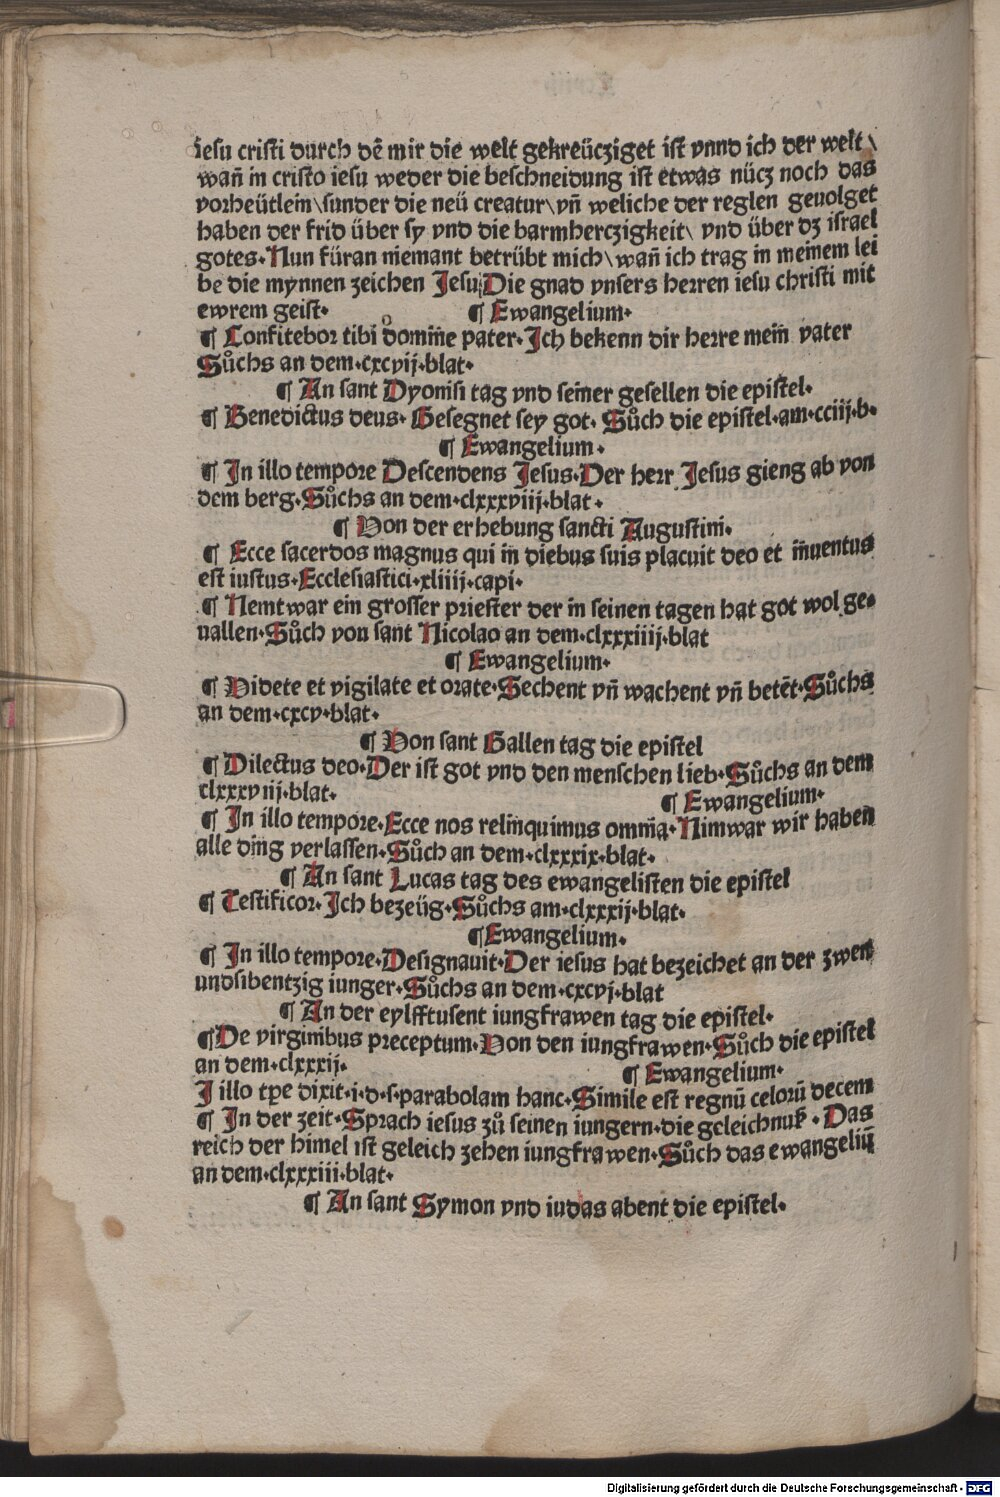 iesu cristi durch dē mir die welt gekreücziget ist vnnd ich der welt \
wañ in cristo iesu weder die beschneidung ist etwas nücz noch das
vorheütlein \ sunder die neü creatur \ vñ weliche der reglen geuolget
haben der frid über sy vnd die barmherczigkeit \ vnd über dz israel
gotes · Nun füran niemant betrübt mich \ wañ ich trag in meinem lei
be die mynnen zeichen Jesu Die gnad vnsers herren iesu christi mit
ewrem geist · ¶ Ewangelium ·
¶ Confitebor tibi domine pater · Ich bekenn dir herre mein vater
Sůchs an dem · cxcvij · blat ·
¶ An sant Dyonisi tag vnd seiner gesellen die epistel ·
¶ Benedictus deus · Gesegnet sey got · Sůch die epistel · am · cciij · b ·
¶ Ewangelium ·
¶ In illo tempore Descendens Jesus · Der herr Jesus gieng ab von
dem berg · Sůchs an dem · clxxxviij · blat ·
¶ Von der erhebung sancti Augustini ·
¶ Ecce sacerdos magnus qui in diebus suis placuit deo et inuentus
est iustus · Ecclesiastici · xliiij · capi ·
¶ Nemt war ein grosser priester der in seinen tagen hat got wol ge ·
uallen · Sůch von sant Nicolao an dem · clxxxiiij · blat
¶ Ewangelium ·
¶ Videte et vigilate et orate · Sechent vñ wachent vñ betēt · Sůchs
an dem · cxcv · blat ·
¶ Von sant Gallen tag die epistel
¶ Dilectus deo · Der ist got vnd den menschen lieb · Sůchs an dem
clxxxviij · blat · ¶ Ewangelium ·
¶ In illo tempore · Ecce nos relinquimus omnia · Nimwar wir haben
alle ding verlassen · Sůch an dem · clxxxix · blat ·
¶ An sant Lucas tag des ewangelisten die epistel
¶ Testificor · Ich bezeüg · Sůchs am · clxxxij · blat ·
¶ Ewangelium ·
¶ In illo tempore · Designauit · Der iesus hat bezeichet an der zwen
undsibentzig iunger · Sůchs an dem · cxcvj · blat
¶ An der eylfftusent iungfrawen tag die epistel ·
¶ De virginibus preceptum · Von den iungfrawen · Sůch die epistel
an dem · clxxxij · ¶ Ewangelium ·
J illo tpe dixit · i · d · s · parabolam hanc · Simile est regnū celorū decem
¶ In der zeit · Sprach iesus zů seinen iungern · die geleichnuß · Das
reich der himel ist geleich zehen iungfrawen · Sůch das ewangeliū
an dem · clxxxiii · blat ·
¶ An sant Symon vnd iudas abent die epistel ·
Digitalisierung gefördert durch die Deutsche Forschungsgemeinschaft - DFG